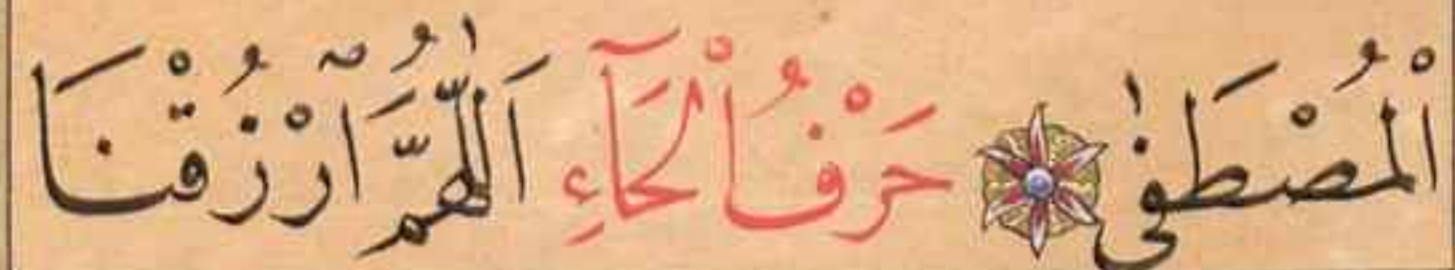 اَلْمُصْطَفٰى حَرْفُ الْحَآءِ اَللّٰهُمَّ ارْزُقْنَا